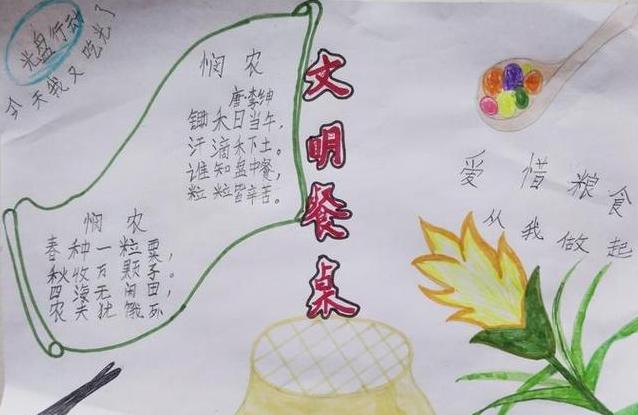 光盘行动
今天我又吃光了
悯农
唐·李绅
锄禾日当午,
汗滴禾下土。
谁知盘中餐,
粒粒皆辛苦。
悯农
春种一粒粟,
秋收万颗子。
四海无闲田,
农夫犹饿死
文明餐桌
爱惜粮食
从我做起